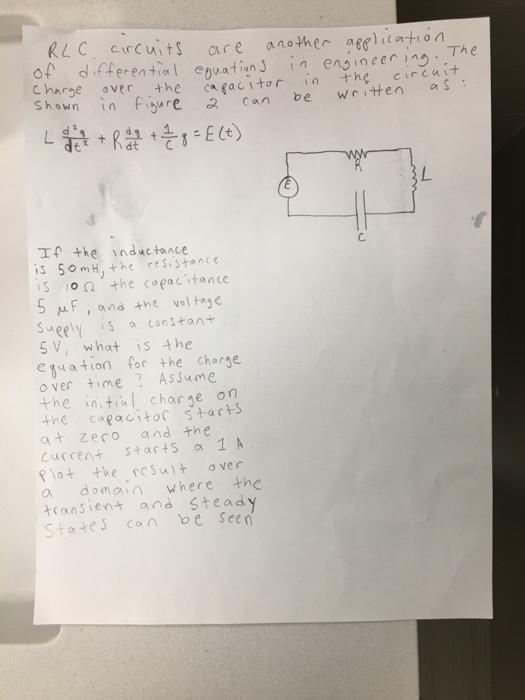 RLC circuits are another application
of differential equations in engineering. The
charge over the capacitor in the circuit
shown in figure 2 can be written as:
L d²q/dt² + R dq/dt + 1/C q = E(t)
E
R
L
C
If the inductance
is 50mH, the resistance
is 10Ω the capacitance
5 μF, and the voltage
supply is a constant
5V, what is the
equation for the charge
over time? Assume
the initial charge on
the capacitor starts
at zero and the
current starts a 1 A.
Plot the result over
a domain where the
transient and steady
states can be seen